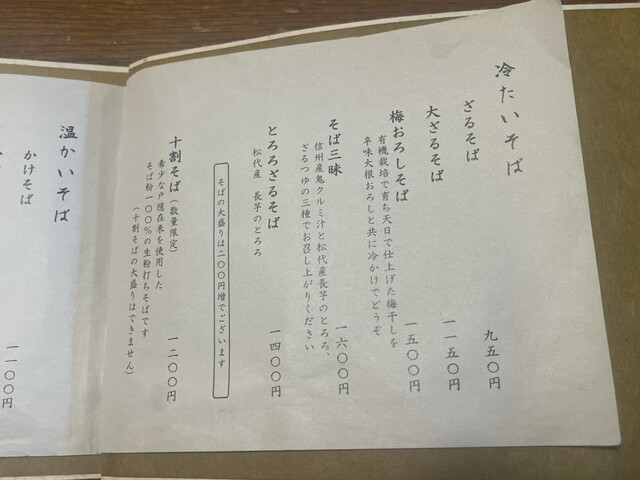 冷たいそば
ざるそば
九五〇円
大ざるそば
一一五〇円
梅おろしそば
有機栽培で育ち天日で仕上げた梅干しを
辛味大根おろしと共に冷かけでどうぞ
一五〇〇円
そば三昧
信州産鬼クルミ汁と松代産長芋のとろろ、
ざるつゆの三種でお召し上がりください
一六〇〇円
とろろざるそば
松代産 長芋のとろろ
一四〇〇円
そばの大盛りは二〇〇円増でございます
十割そば(数量限定)
希少な戸隠在来を使用した
そば粉一〇〇％の生粉打ちそばです
(十割そばの大盛りはできません)
一二〇〇円
温かいそば
かけそば
一一〇〇円